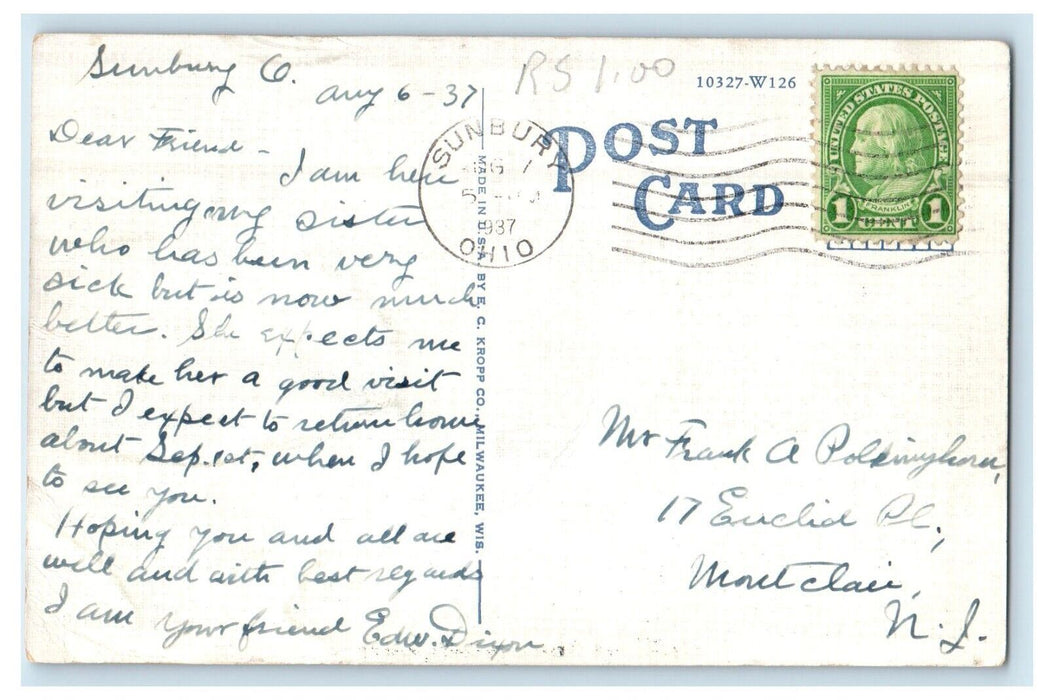 Sunbury O.
Aug 6-37
Dear Friend -
I am here
visiting my sister
who has been very
sick but is now much
better. She expects me
to make her a good visit
but I expect to return home
about Sep. 1st, when I hope
to see you.
Hoping you and all are
well and with best regards
I am your friend Edw. Dixon
RS 1.00
10327-W126
POST
CARD
SUNBURY
1937
OHIO
UNITED STATES POSTAGE
FRANKLIN
1 CENT 1
MADE IN U.S.A. BY E. C. KROPP CO., MILWAUKEE, WIS.
Mr Frank A
17 Euclid Pl.,
Montclair,
N.J.